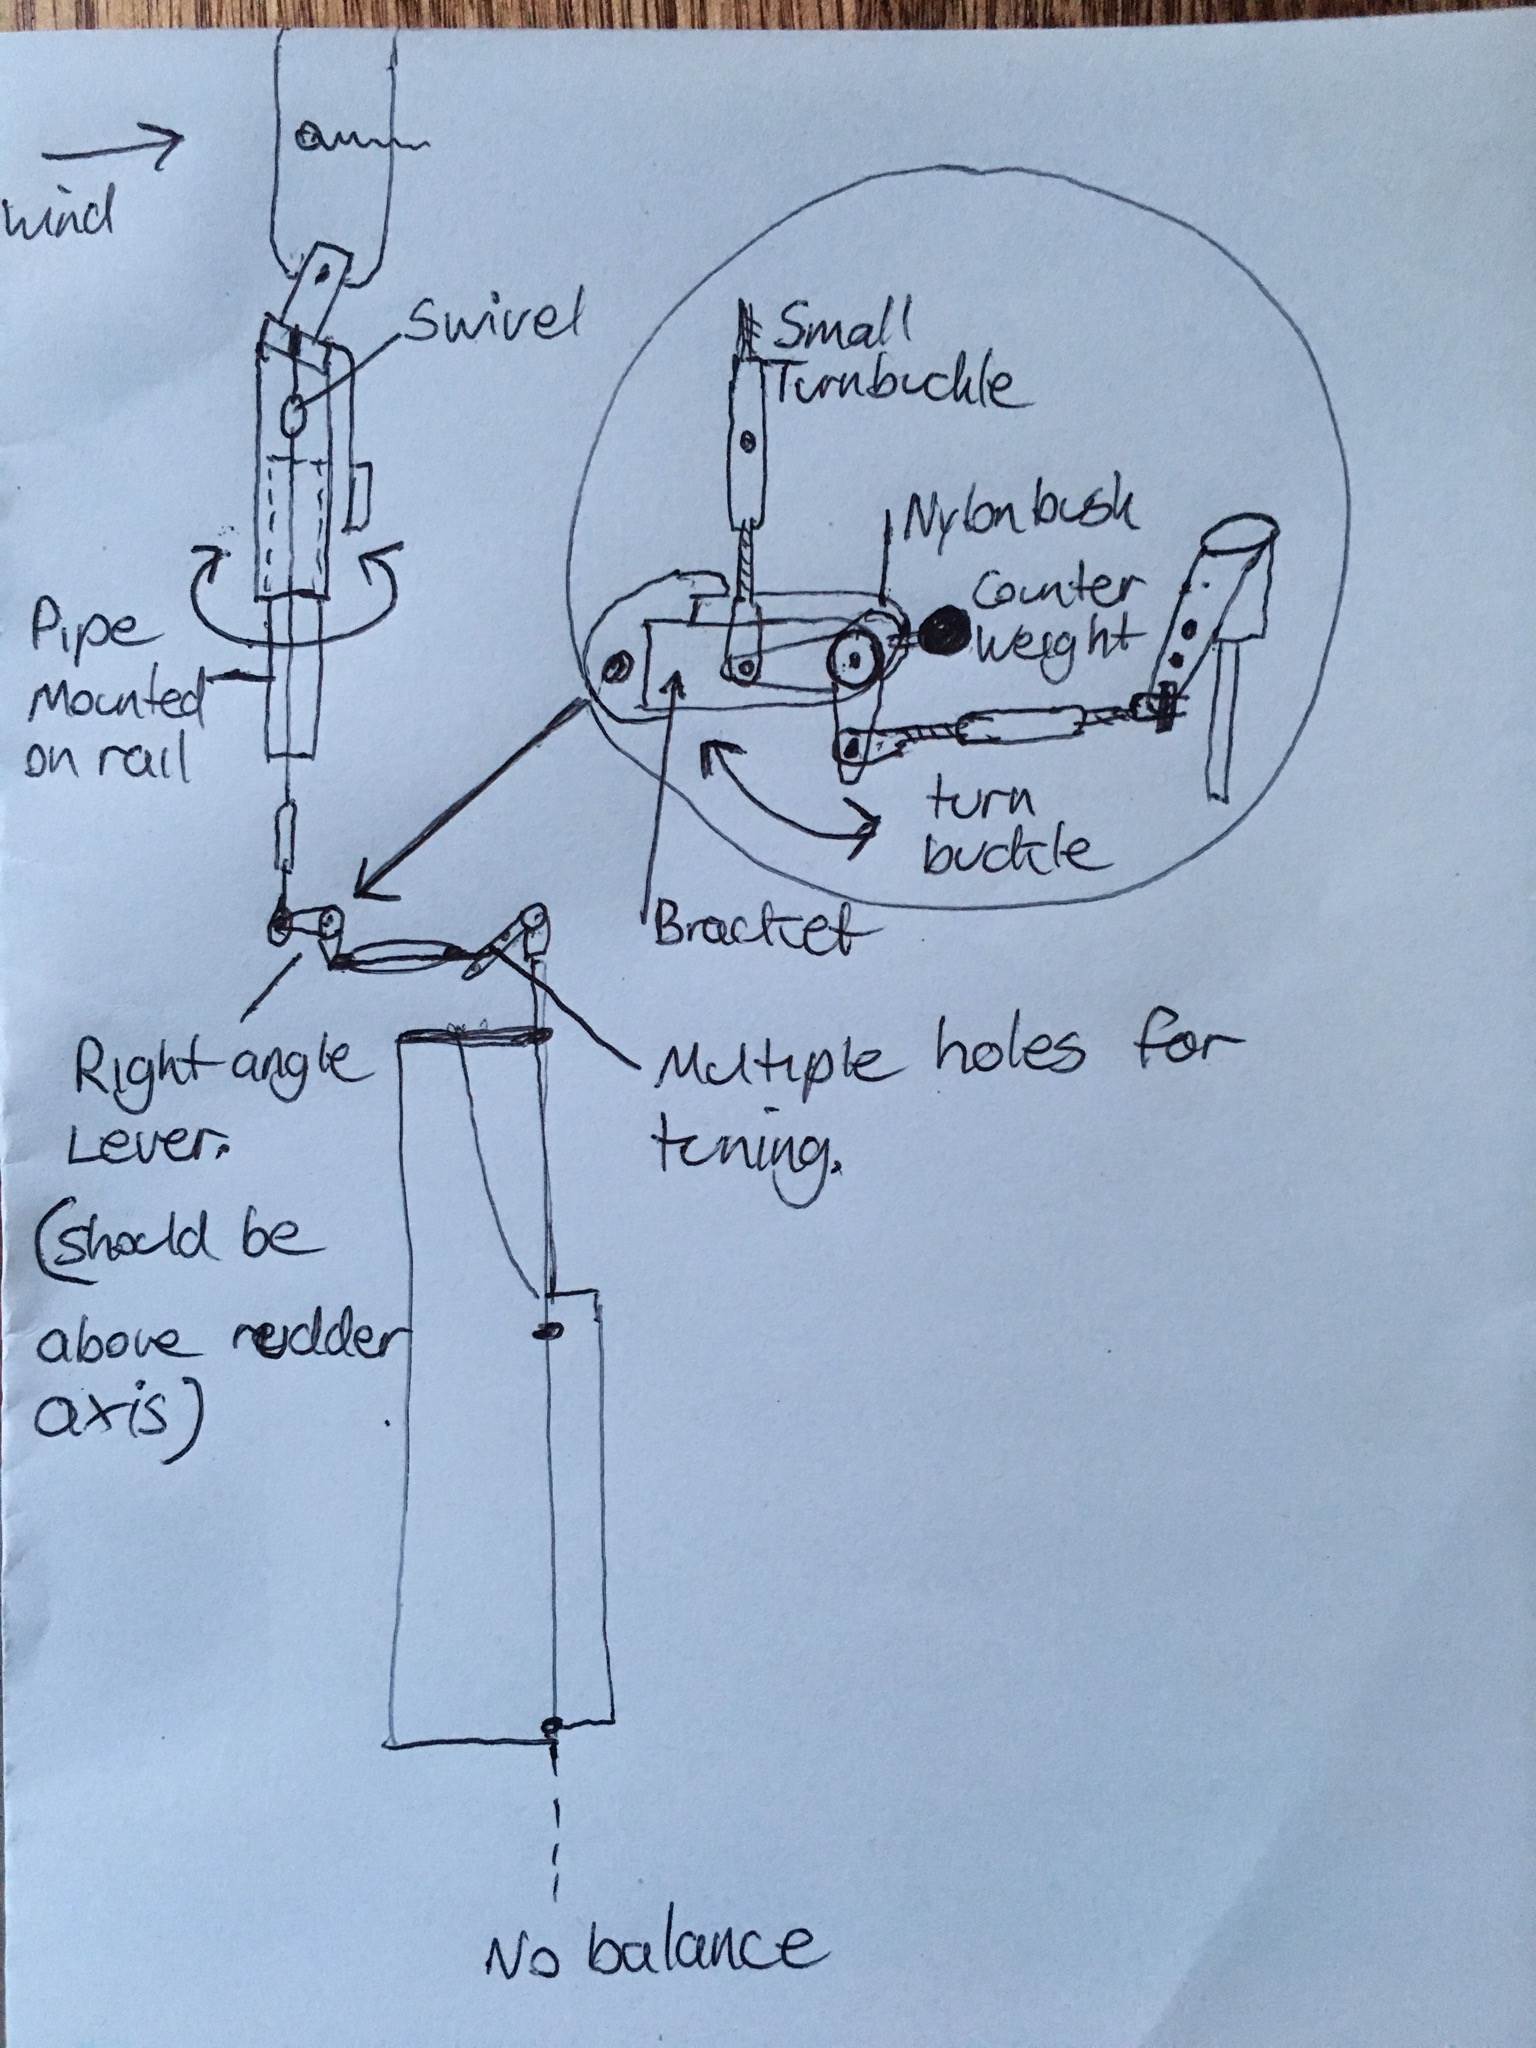 wind
Swivel
Small
Turnbuckle
Nylon bush
Counter
weight
Pipe
Mounted
on rail
turn
buckle
Bracket
Right angle
Lever.
(should be
above rudder
axis)
Multiple holes for
tuning.
No balance